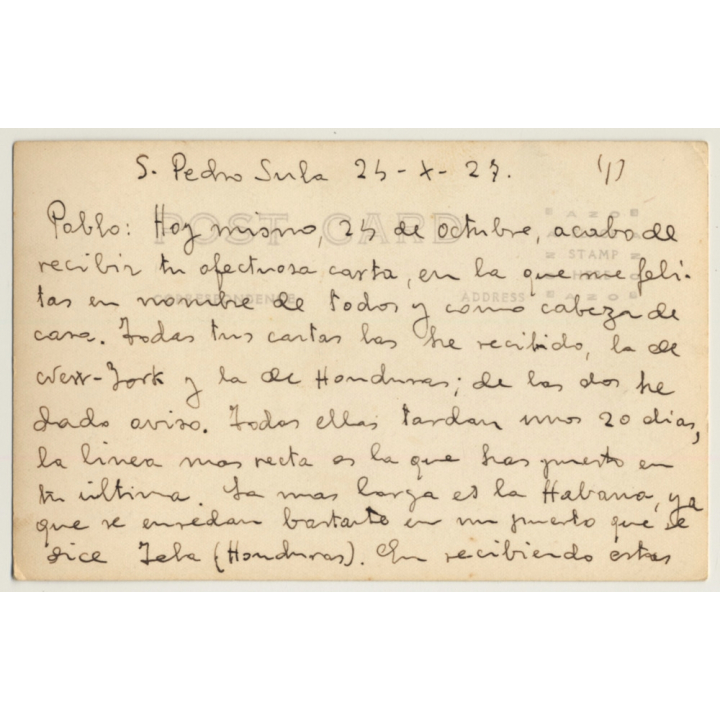 S. Pedro Sula 25-X-27. (1)
Pablo: Hoy mismo, 25 de octubre, acabo de
recibir tu afectuosa carta, en la que me feli-
tas en nombre de todos y como cabeza de
casa. Todas tus cartas las he recibido, la de
New-York y la de Honduras; de las dos he
dado aviso. Todas ellas tardan unos 20 dias,
la linea mas recta es la que has puesto en
tu última. La mas larga es la Habana, ya
que se enredan bastante en un puerto que se
dice Tela (Honduras). En recibiendo estas
POST CARD
CORRESPONDENCE
ADDRESS
AZO
STAMP
HERE
AZO